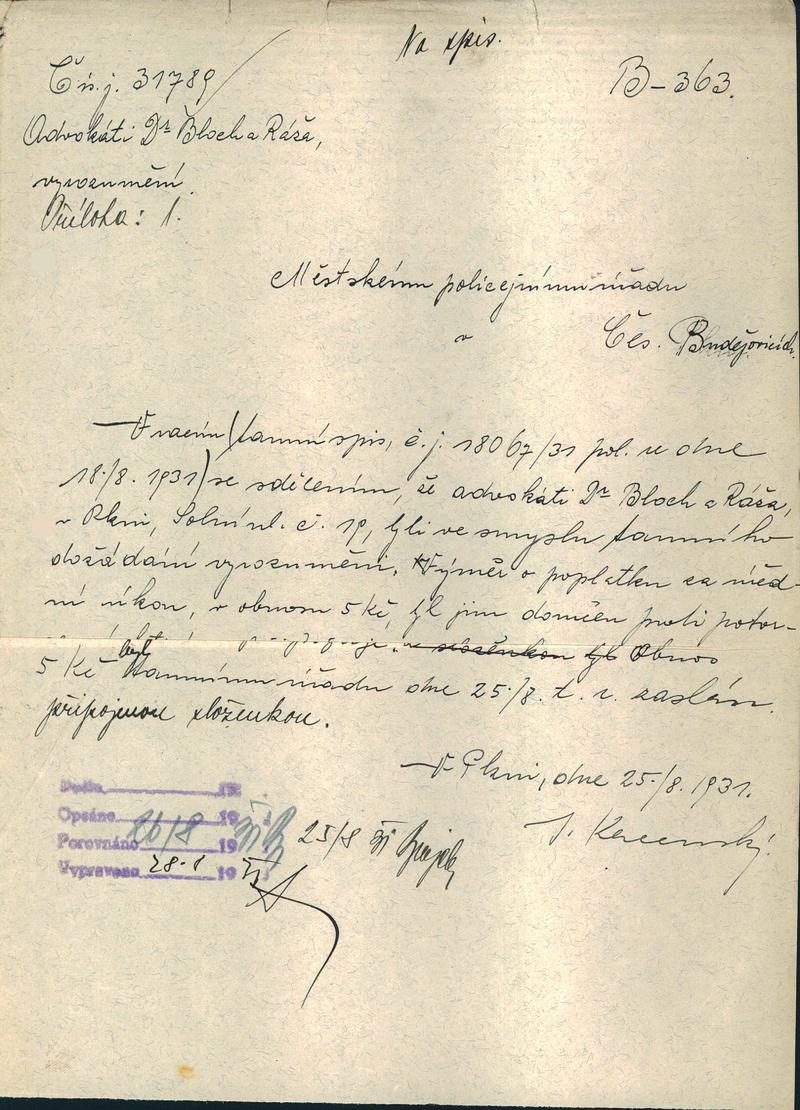 Na spis.
Čís. j. 31789
B-363.
Advokáti Dr Bloch a Ráža,
vyrozumění.
Příloha: 1.
Městskému policejnímu úřadu
v
Čes. Budějovicích.
Vracím (tamní spis, č.j. 18067/31 pol. ze dne
18./8. 1931) se sdělením, že advokáti Dr Bloch a Ráža,
v Plzni, Solní ul. č. 19, byli ve smyslu tamního
dožádání vyrozuměni. Výměr o poplatku za úřed-
ní úkon, v obnosu 5 Kč, byl jim doručen proti potvr-
složenkou byl Obnos
5 Kč byl tamnímu úřadu dne 25./8. t. r. zaslán
připojenou složenkou.
V Plzni, dne 25./8. 1931.
Došlo 19
Opsáno 19
Porovnáno 26/8 19
Vypraveno 28.8 19
25/8 31